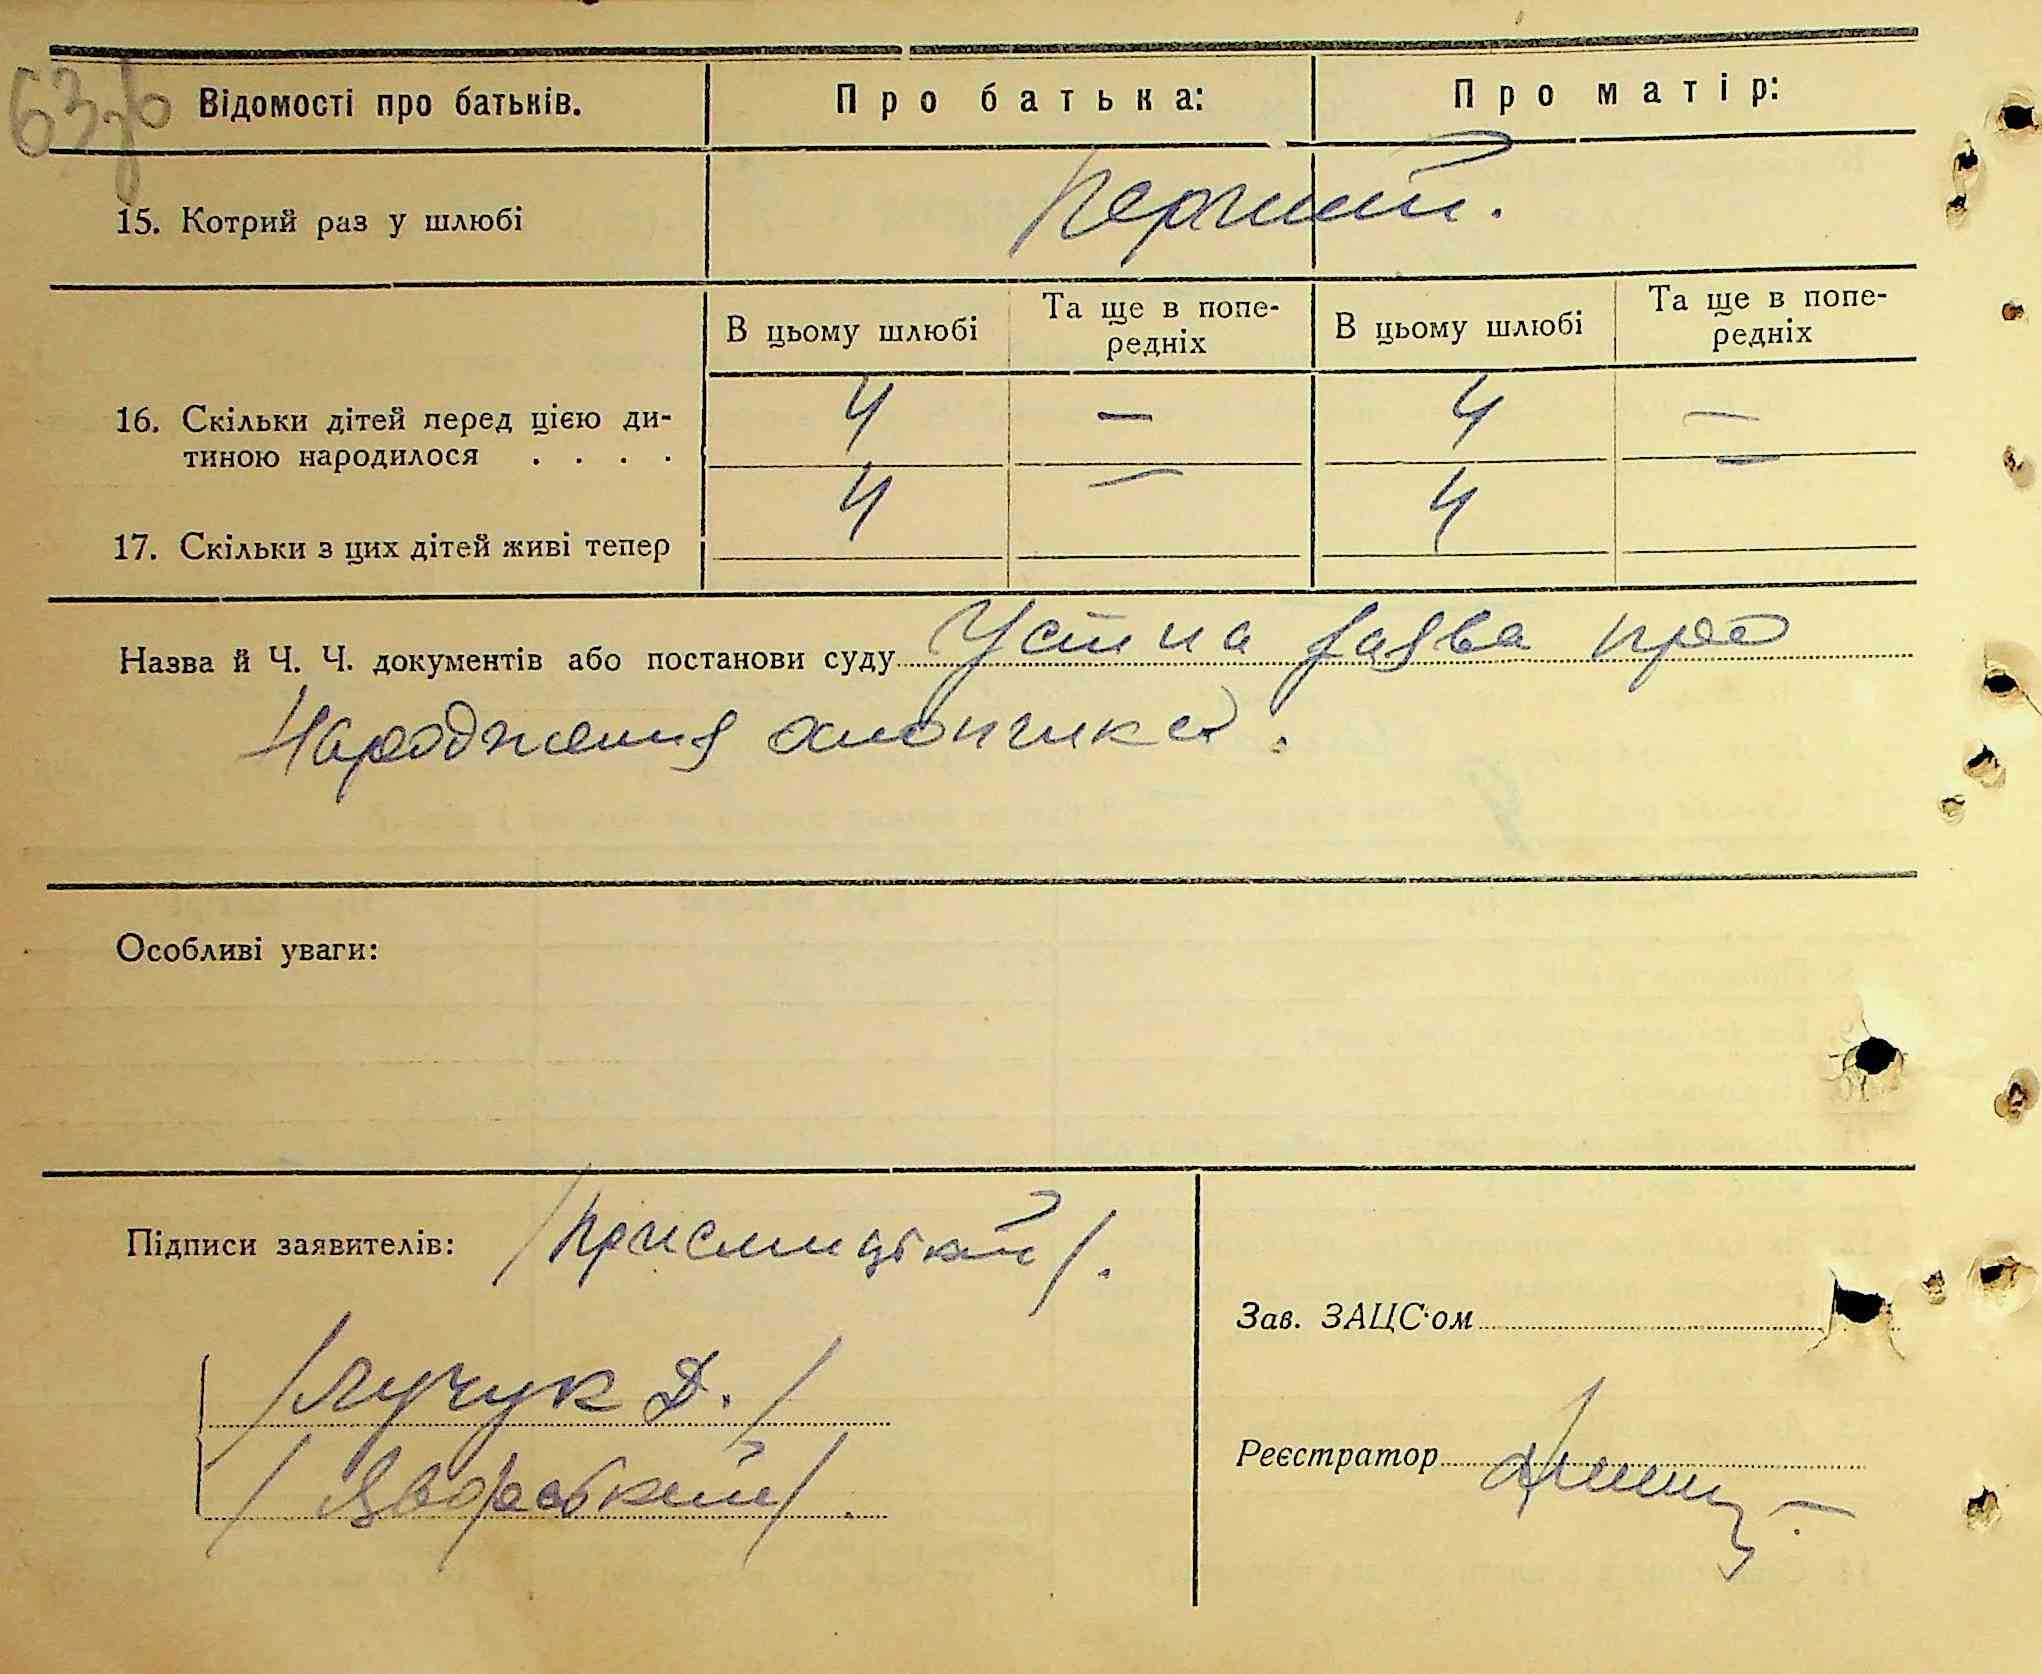 63зв
Відомості про батьків.
Про батька:
Про матір:
15. Котрий раз у шлюбі
Перший.
В цьому шлюбі
Та ще в попе-
редніх
В цьому шлюбі
Та ще в попе-
редніх
16. Скільки дітей перед цією ди-
тиною народилося . . . .
4 — 4 —
17. Скільки з цих дітей живі тепер
4 — 4 —
Назва й Ч. Ч. документів або постанови суду Устна заява про
Народження хлопчика.
Особливі уваги:
Підписи заявителів:
/Лучук Д./
/Яворський/.
Зав. ЗАЦС'ом
Реєстратор